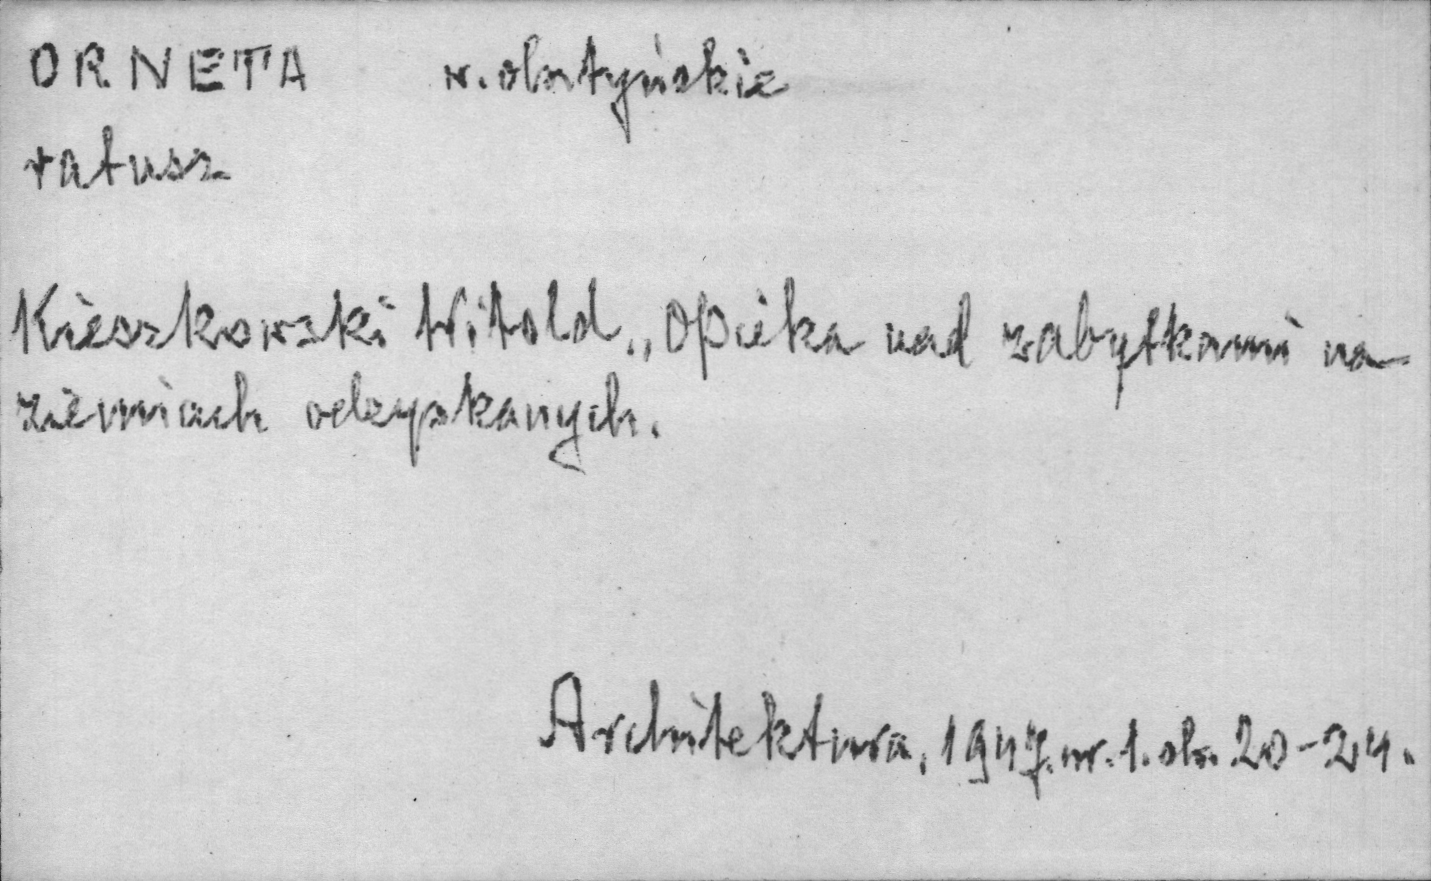 ORNETA w. olsztyńskie
ratusz
Kieszkowski Witold „Opieka nad zabytkami na
ziemiach odzyskanych.
Architektura, 1947. nr. 1. str. 20-24.